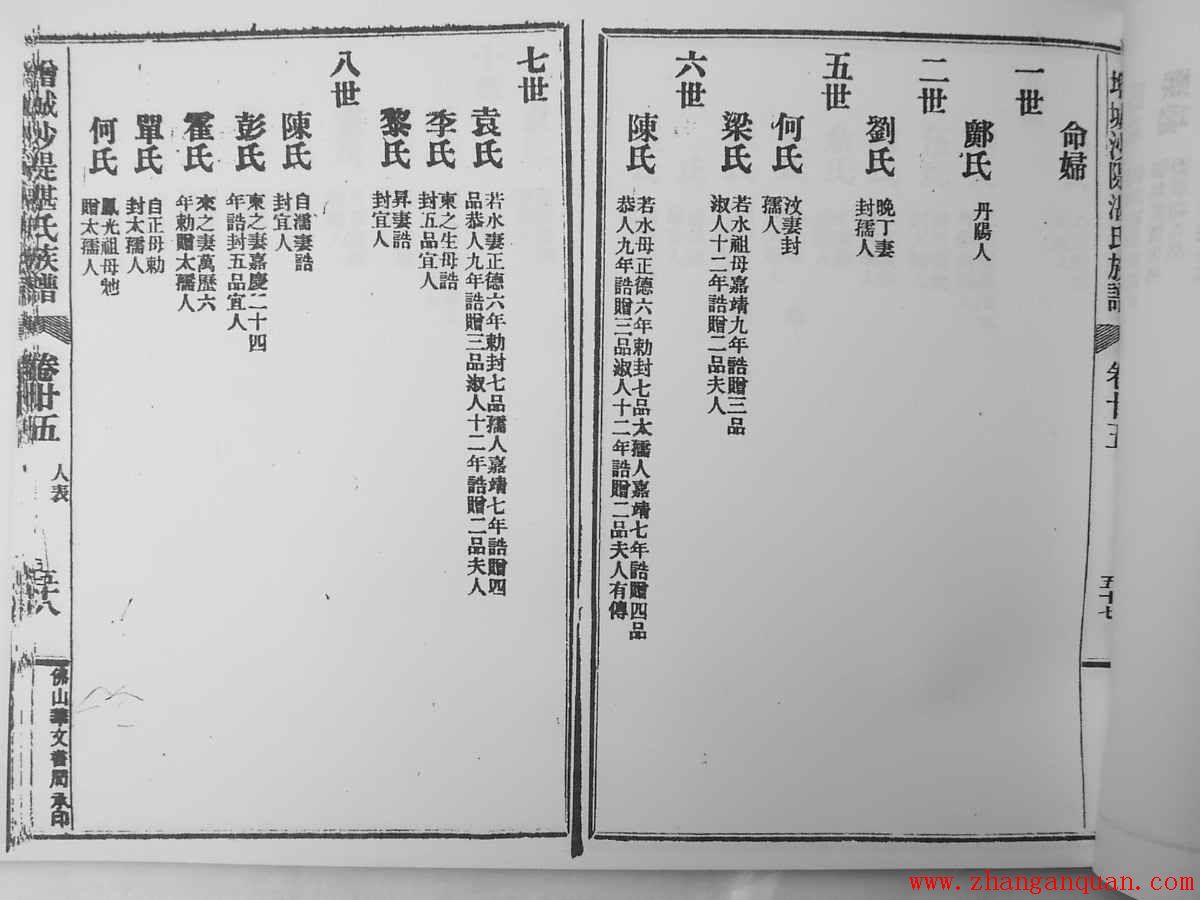 命婦
一世
鄺氏
丹陽人
二世
劉氏
晚丁妻
封孺人
五世
何氏
汶妻封
孺人
梁氏
若水祖母嘉靖九年誥贈三品
淑人十二年誥贈二品夫人
六世
陳氏
若水母正德六年勅封七品太孺人嘉靖七年誥贈四品
恭人九年誥贈三品淑人十二年誥贈二品夫人有傳
五十七
七世
袁氏
若水妻正德六年勅封七品孺人嘉靖七年誥贈四
品恭人九年誥贈三品淑人十二年誥贈二品夫人
李氏
東之生母誥
封五品宜人
黎氏
昇妻誥
封宜人
八世
陳氏
自濡妻誥
封宜人
彭氏
東之妻嘉慶二十四
年誥封五品宜人
霍氏
來之妻萬歷六
年勅贈太孺人
單氏
自正母勅
封太孺人
何氏
鳳光祖母馳
贈太孺人
增城沙堤湛氏族譜
卷廿五
人表
五十八
佛山華文書局承印
www.zhanganquan.com